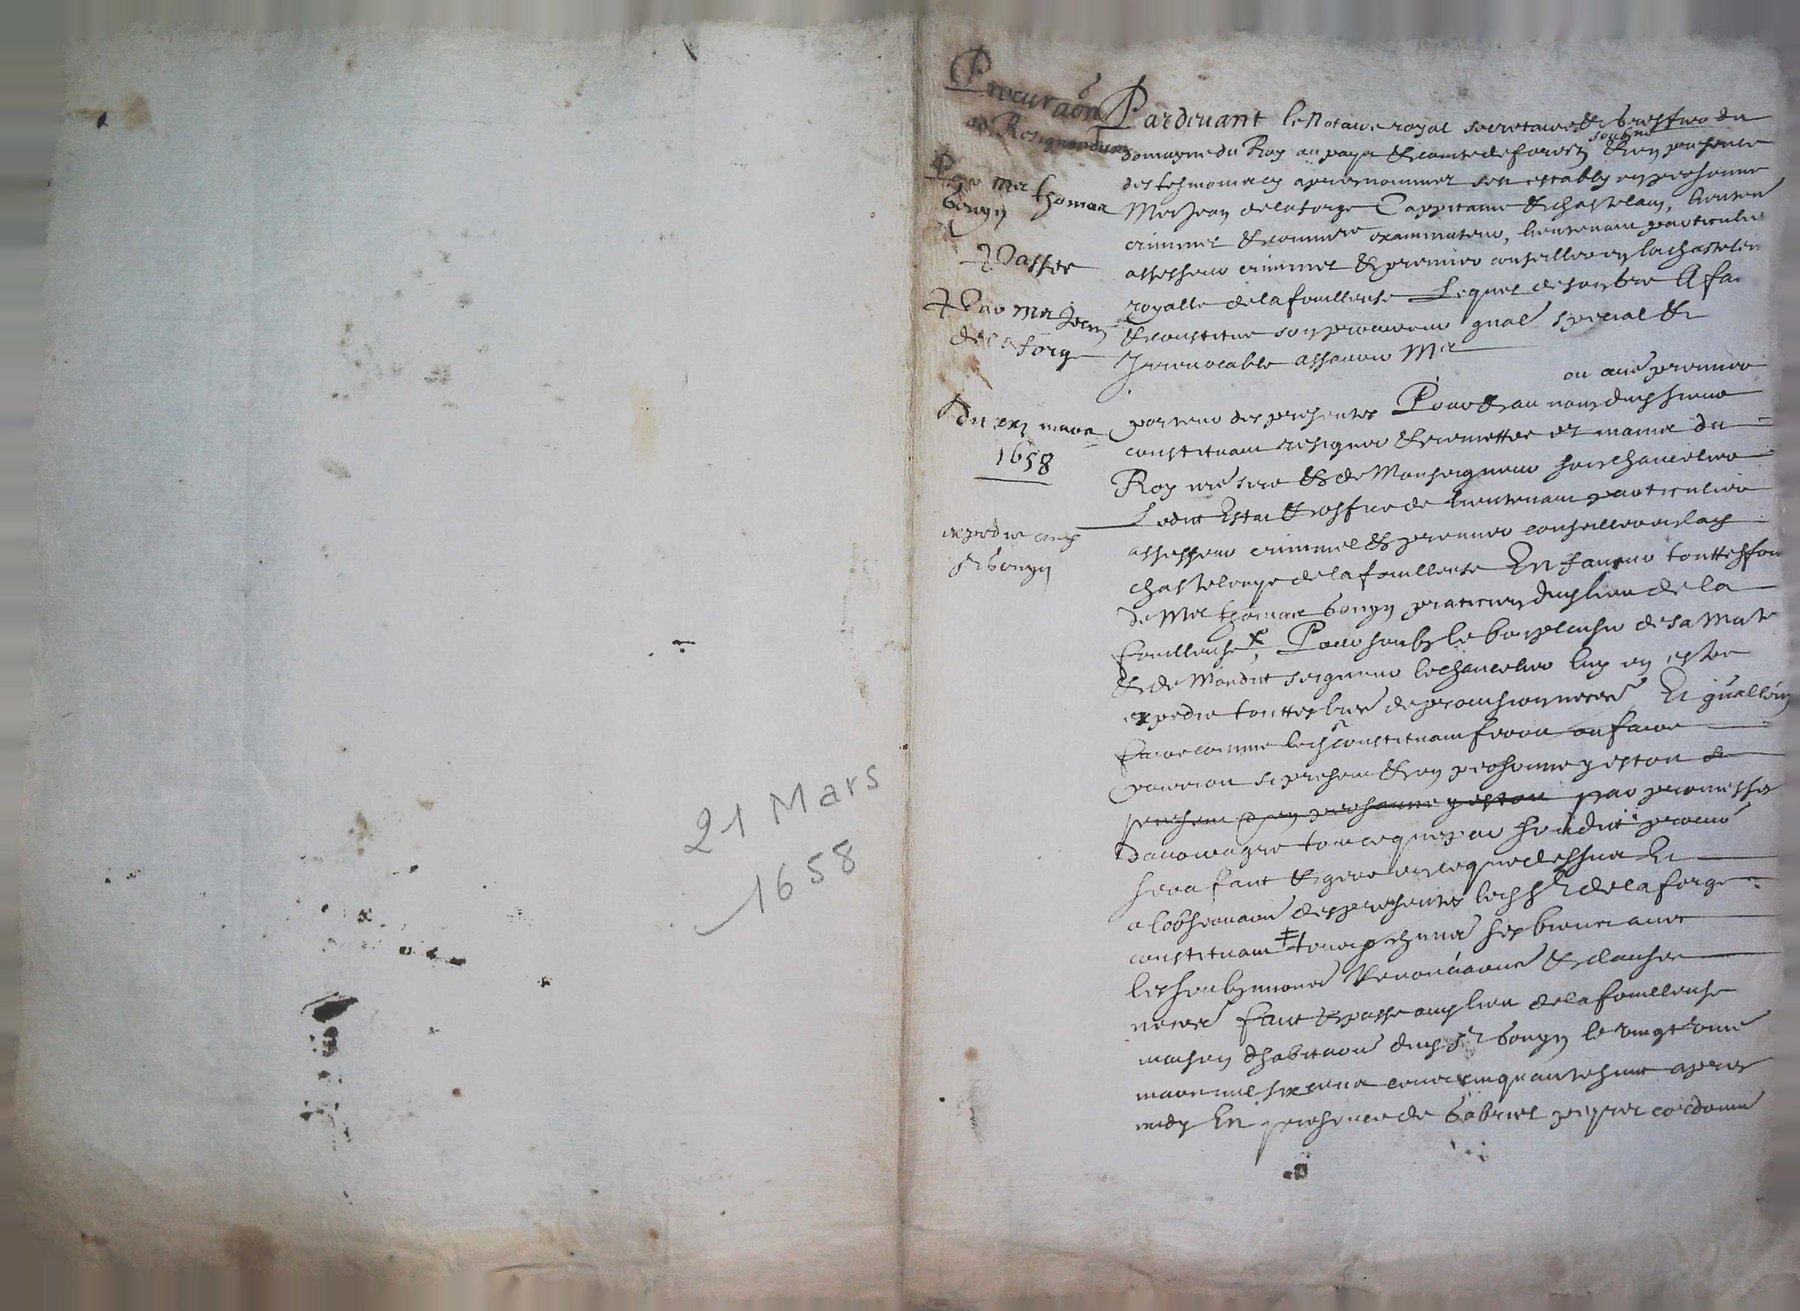 21 Mars
1658
Procuraon
ad Resignandum
Pour Me thomas
Gonyn
Passée
Par Me Jean
de la forge
du xxj mars
1658
expedie audit
Sr Gonyn
Pardevant le Notaire royal secretaire & greffier du
domayne du Roy au pays & comte de forestz soubzne & en presence
des tesmoins cy apres nommez sest estably en personne
Me Jean de la forge Cappitaine & chastelain, lieuten
criminel & commre examinateur, lieutenant particulier
assesseur criminel & premier conseiller en la chastelen
royalle de la fouillouse Lequel de son gre A fai
& constitue son procureur gnal special &
Irrevocable assavoir Me
ou aue premier
porteur des presentes Pour & au nom dud sieur
constituant resigner & remettre ez mains du
Roy nre sire & de Monseigneur son chancelier
Ledit Estat & office de lieutenant particulier
assesseur criminel & premier conseiller en lad
chastelenye de la fouillouse En faveur touttesfois
de Me thomas Gonyn praticien dud lieu de la
fouillouse Pour soubz le bon plaisir de sa Mate
& de Mondit seigneur le chancelier luy en estre
expedie touttes lres de provision necres Et gnallement
faire comme led sr constituant feroit ou faire
pourroit si present & en personne y estoit
present & en personne y estoit par promesses
davoir agre tout ce que par sondit procur
sera fait & gere en ce que dessus Et
a lobservaon des presentes led sr de la forge
constituant ses biens avec
les soubzmions Renonciaons & clauses
necres fait & passe aud lieu de la fouillouse
maison dhabitaon dud Sr Gonyn le vingt unie
mars mil six cens cinquante huit apres
midy En presence de Gabriel cordonnie